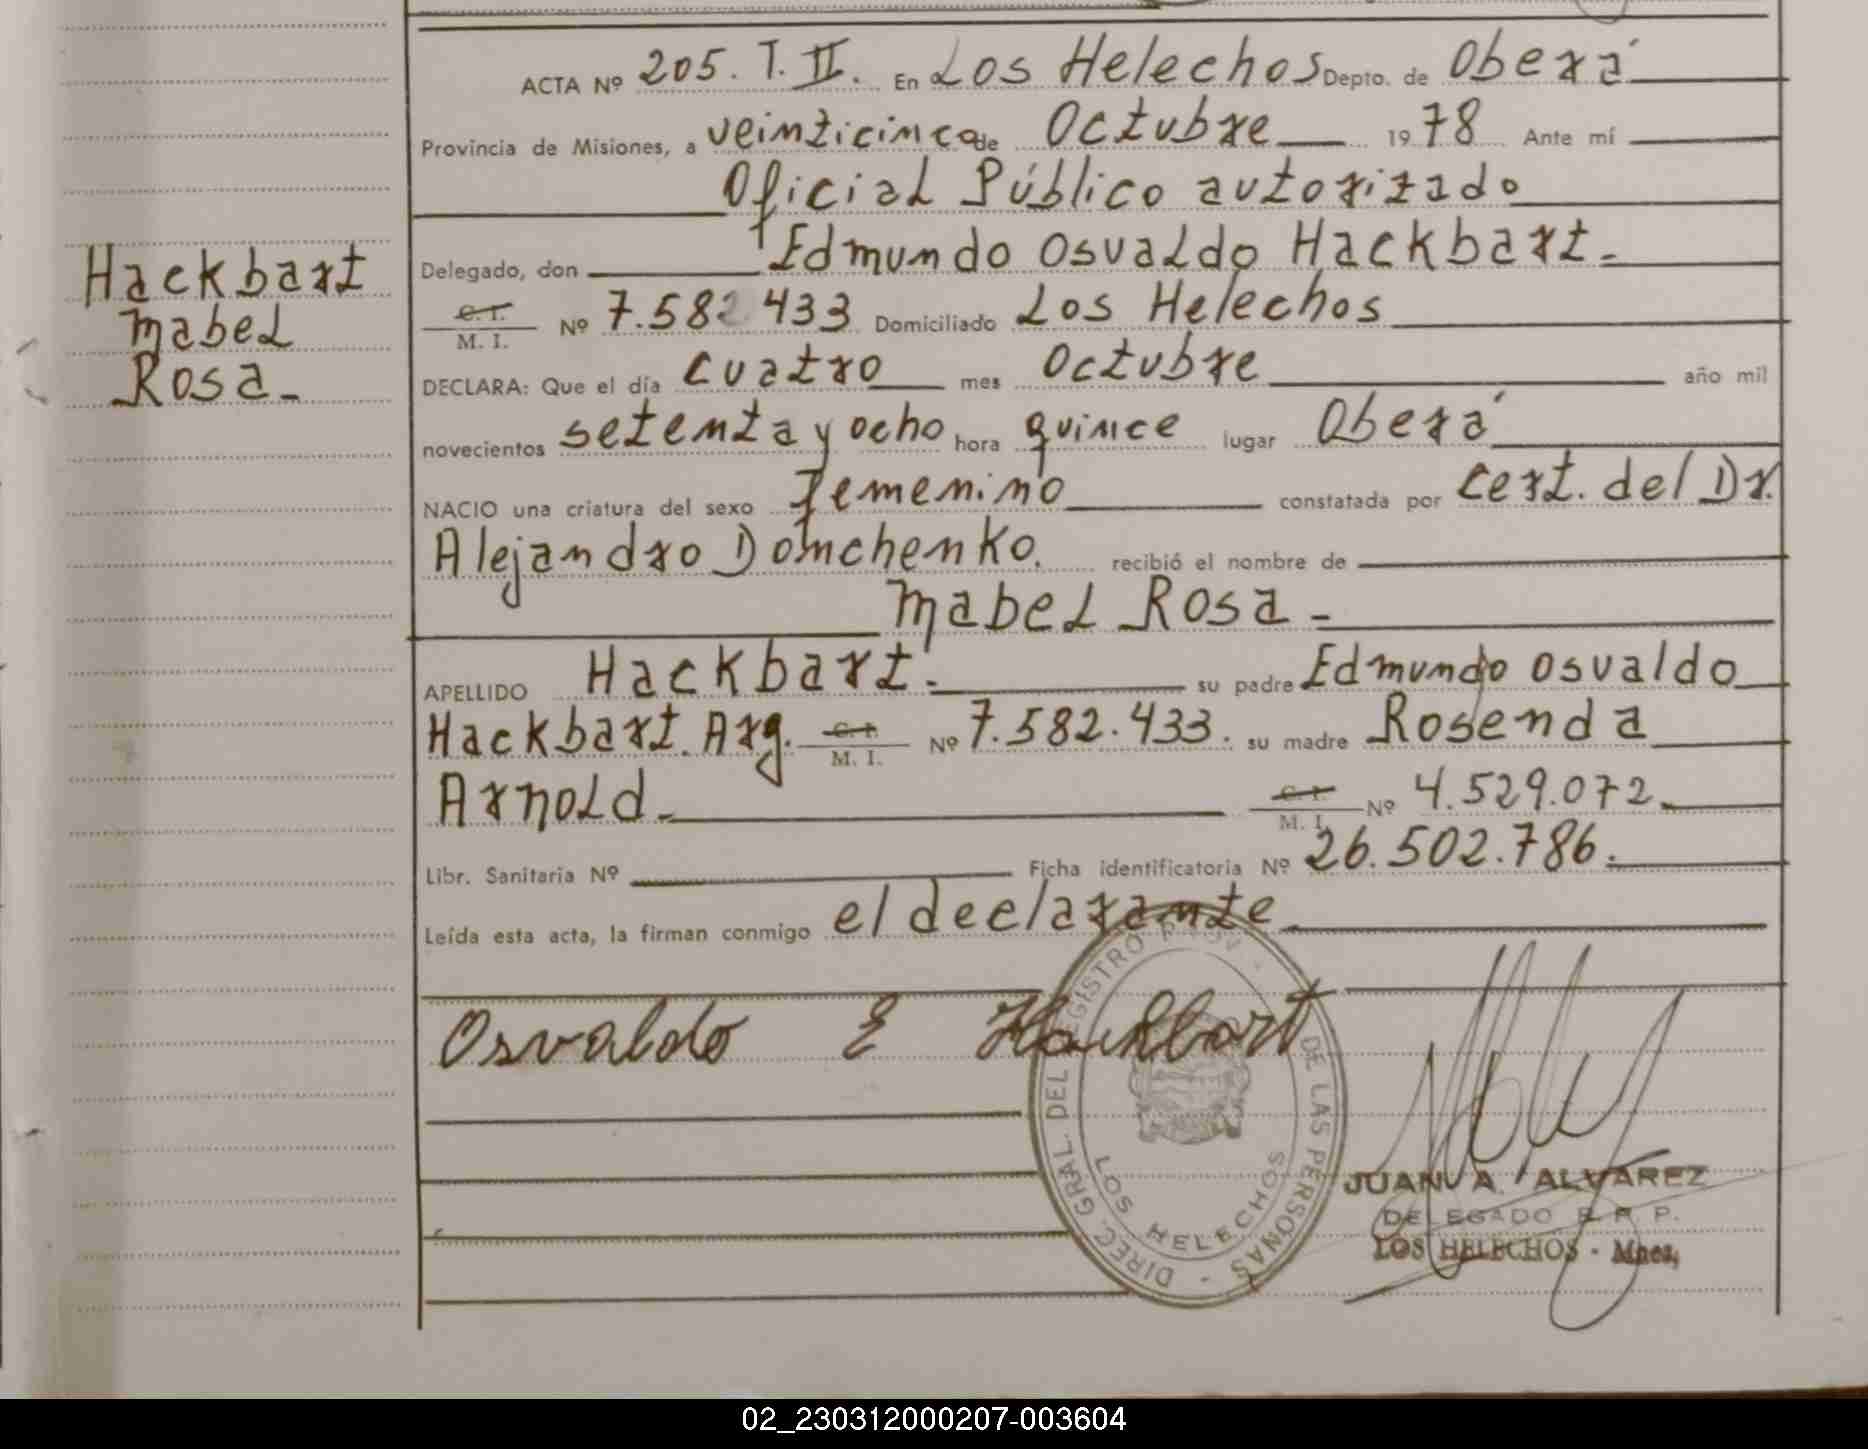 ACTA Nº 205. T. II. En Los Helechos Depto. de Oberá
Provincia de Misiones, a veinticinco de Octubre 1978 Ante mí
Oficial Público autorizado
Delegado, don Edmundo Osvaldo Hackbart.
C. I. M. I. Nº 7.582 433 Domiciliado Los Helechos
DECLARA: Que el día cuatro mes Octubre año mil
novecientos setenta y ocho hora quince lugar Oberá
NACIO una criatura del sexo femenino constatada por cert. del Dr.
Alejandro Domchenko. recibió el nombre de
Mabel Rosa -
APELLIDO Hackbart. su padre Edmundo Osvaldo
Hackbart. Arg. C. I. M. I. Nº 7.582.433. su madre Rosenda
Arnold. C. I. M. I. Nº 4.529.072.
Libr. Sanitaria Nº Ficha identificatoria Nº 26.502.786.
Leída esta acta, la firman conmigo el declarante
Osvaldo E Hackbart
Hackbart
Mabel
Rosa -
DIREC. GRAL. DEL REGISTRO PROV. DE LAS PERSONAS -
LOS HELECHOS
JUAN A. ALVAREZ
DELEGADO R. P. P.
LOS HELECHOS - Mnes.
02_230312000207-003604